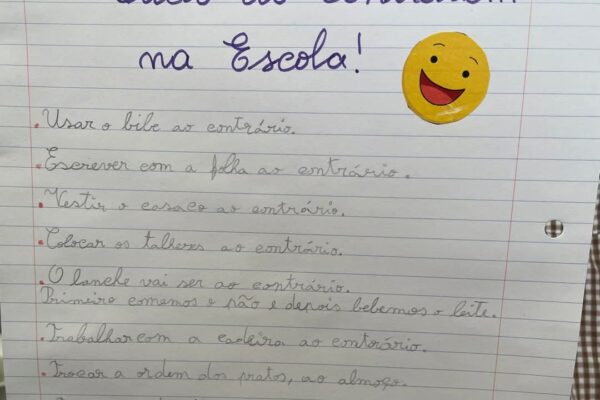 ao contrário
na Escola!
. Usar o bibe ao contrário.
. Escrever com a folha ao contrário.
. Vestir o casaco ao contrário.
. Colocar os talheres ao contrário.
. O lanche vai ser ao contrário.
Primeiro comemos o pão e depois bebemos o leite.
. Trabalhar com a cadeira ao contrário.
. Trocar a ordem dos pratos, ao almoço.